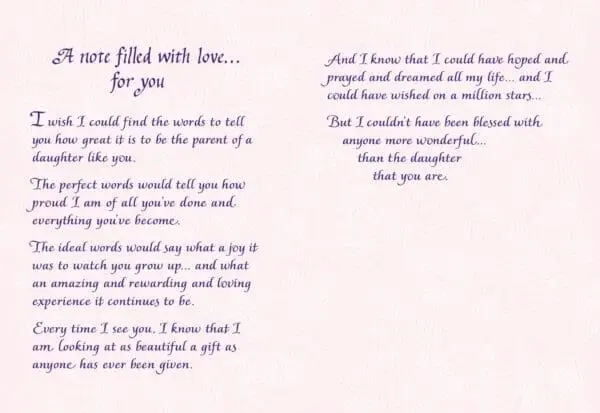 A note filled with love...
for you
I wish I could find the words to tell
you how great it is to be the parent of a
daughter like you.
The perfect words would tell you how
proud I am of all you've done and
everything you've become.
The ideal words would say what a joy it
was to watch you grow up... and what
an amazing and rewarding and loving
experience it continues to be.
Every time I see you, I know that I
am looking at as beautiful a gift as
anyone has ever been given.
And I know that I could have hoped and
prayed and dreamed all my life... and I
could have wished on a million stars...
But I couldn't have been blessed with
anyone more wonderful...
than the daughter
that you are.